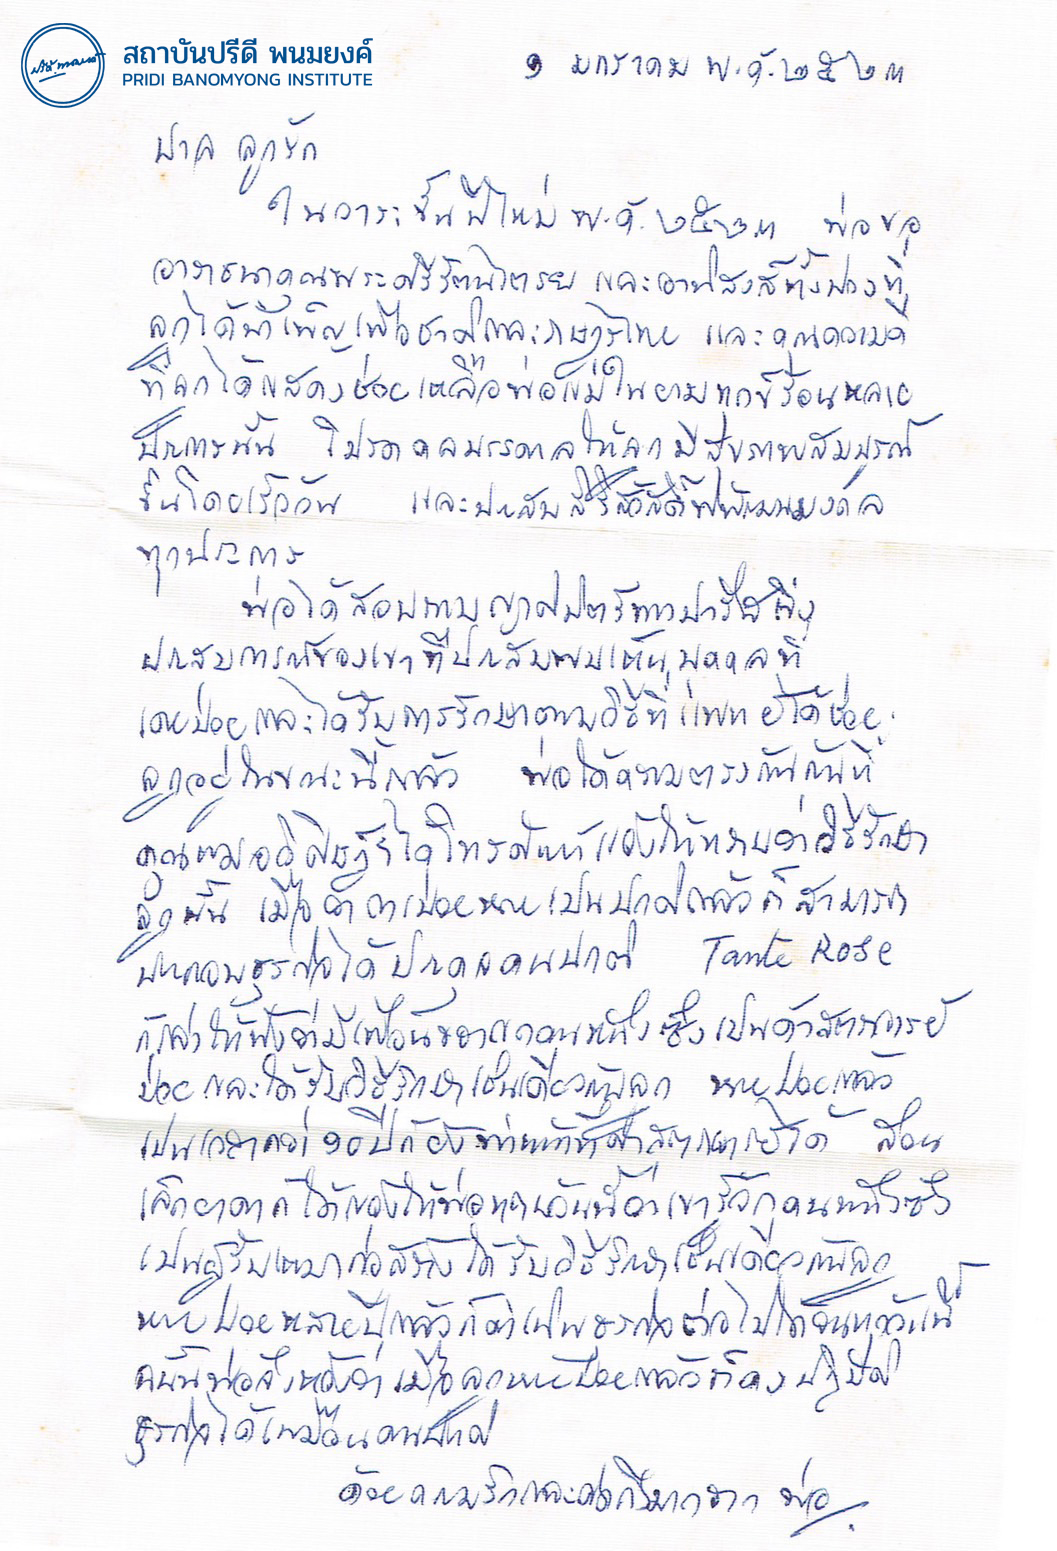 สถาบันปรีดี พนมยงค์
PRIDI BANOMYONG INSTITUTE
๑ มกราคม พ.ศ. ๒๕๒๓
ปาล ลูกรัก
ในวาระขึ้นปีใหม่ พ.ศ. ๒๕๒๓ พ่อขอ
อาราธนาคุณพระศรีรัตนไตรย และอานิสงส์ทั้งปวงที่
ลูกได้บำเพ็ญเพื่อชาติและราษฎรไทย และคุณความดี
ที่ลูกได้แสดงช่วยเหลือพ่อแม่ในยามทุกข์ร้อนหลาย
ประการนั้น โปรดดลบรรดาลให้ลูกมีสุขภาพสมบูรณ์
ขึ้นโดยเร็ววัน และประสบสิริสวัสดิ์พิพัฒนมงคล
ทุกประการ
พ่อได้สอบถามญาติมิตรทางปารีสถึง
ประสบการณ์ของเขาที่ประสบพบเห็นบุคคลที่
เคยป่วยและได้รับการรักษาตามวิธีที่แพทย์ได้ช่วย
ลูกอยู่ในขณะนี้แล้ว พ่อได้ความตรงกันกับที่
คุณหมอ ได้โทรศัพท์แจ้งให้ทราบว่าวิธีรักษา
ลูกนั้น เมื่อ หายเป็นปกติแล้วก็สามารถ
ประกอบธุรกิจได้ประดุจคนปกติ Tante Rose
ก็เล่าให้ฟังว่ามีเพื่อน คนหนึ่งซึ่งเป็นศาสตราจารย์
ป่วยและได้รับวิธีรักษาเช่นเดียวกับลูก หายป่วยแล้ว
เป็นเวลากว่า ๑๐ ปีก็ยังทำหน้าที่ศาสตราจารย์ได้ ส่วน
เล็ก ก็ได้แจ้งให้พ่อทราบวันนี้ว่าเขารู้จักคนหนึ่งซึ่ง
เป็นผู้รับเหมาก่อสร้างได้รับวิธีรักษาเช่นเดียวกับลูก
หายป่วยหลายปีแล้วก็ดำเนินธุรกิจต่อไปได้จนทุกวันนี้
ดังนั้นพ่อจึงหวังว่าเมื่อลูกหายป่วยแล้วก็คงปฏิบัติ
ธุรกิจได้เหมือนคนปกติ
ด้วยความรักและคิดถึงมากจาก พ่อ